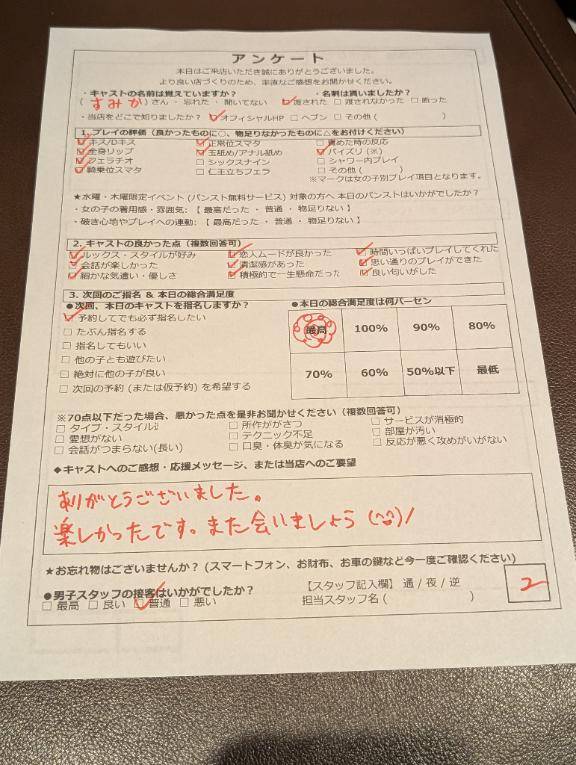 アンケート
本日はご来店いただき誠にありがとうございました。
より良い店づくりのため、率直なご感想をお聞かせください。
・キャストの名前は覚えていますか? ・名刺は貰いましたか?
(すみか)さん ・ 忘れた ・ 聞いてない ☑渡された □渡されなかった □断った
・当店をどこで知りましたか? ☑オフィシャルHP □ヘブン □その他( )
1. プレイの評価(良かったものに○、物足りなかったものに△をお付けください)
☑キス/Dキス ☑正常位スマタ □責めた時の反応
☑全身リップ ☑玉舐め/アナル舐め ☑パイズリ(※)
☑フェラチオ □シックスナイン □シャワー内プレイ
☑騎乗位スマタ □仁王立ちフェラ □その他( )
※マークは女の子別プレイ項目となります。
★水曜・木曜限定イベント(パンスト無料サービス)対象の方へ 本日のパンストはいかがでしたか?
・女の子の着用感・雰囲気:【 最高だった ・ 普通 ・ 物足りない 】
・破き心地やプレイへの連動:【 最高だった ・ 普通 ・ 物足りない 】
2. キャストの良かった点(複数回答可)
☑ルックス・スタイルが好み ☑恋人ムードが良かった ☑時間いっぱいプレイしてくれた
☑会話が楽しかった ☑清潔感があった ☑思い通りのプレイができた
☑細かな気遣い・優しさ ☑積極的で一生懸命だった ☑良い匂いがした
3. 次回のご指名 & 本日の総合満足度
●次回、本日のキャストを指名しますか? ●本日の総合満足度は何パーセン
☑予約してでも必ず指名したい
□たぶん指名する
□指名してもいい
□他の子とも遊びたい
□絶対に他の子が良い
□次回の予約(または仮予約)を希望する
最高 100% 90% 80%
70% 60% 50%以下 最低
※70点以下だった場合、悪かった点を是非お聞かせください(複数回答可)
□タイプ・スタイル □所作ががさつ □サービスが消極的
□愛想がない □テクニック不足 □部屋が汚い
□会話がつまらない(長い) □口臭・体臭が気になる □反応が悪く攻めがいがない
◆キャストへのご感想・応援メッセージ、または当店へのご要望
ありがとうございました。
楽しかったです。また会いましょう(^^)/
★お忘れ物はございませんか?(スマートフォン、お財布、お車の鍵など今一度ご確認ください)
●男子スタッフの接客はいかがでしたか?
□最高 □良い ☑普通 □悪い
【スタッフ記入欄】 通 / 夜 / 逆
担当スタッフ名( )
2